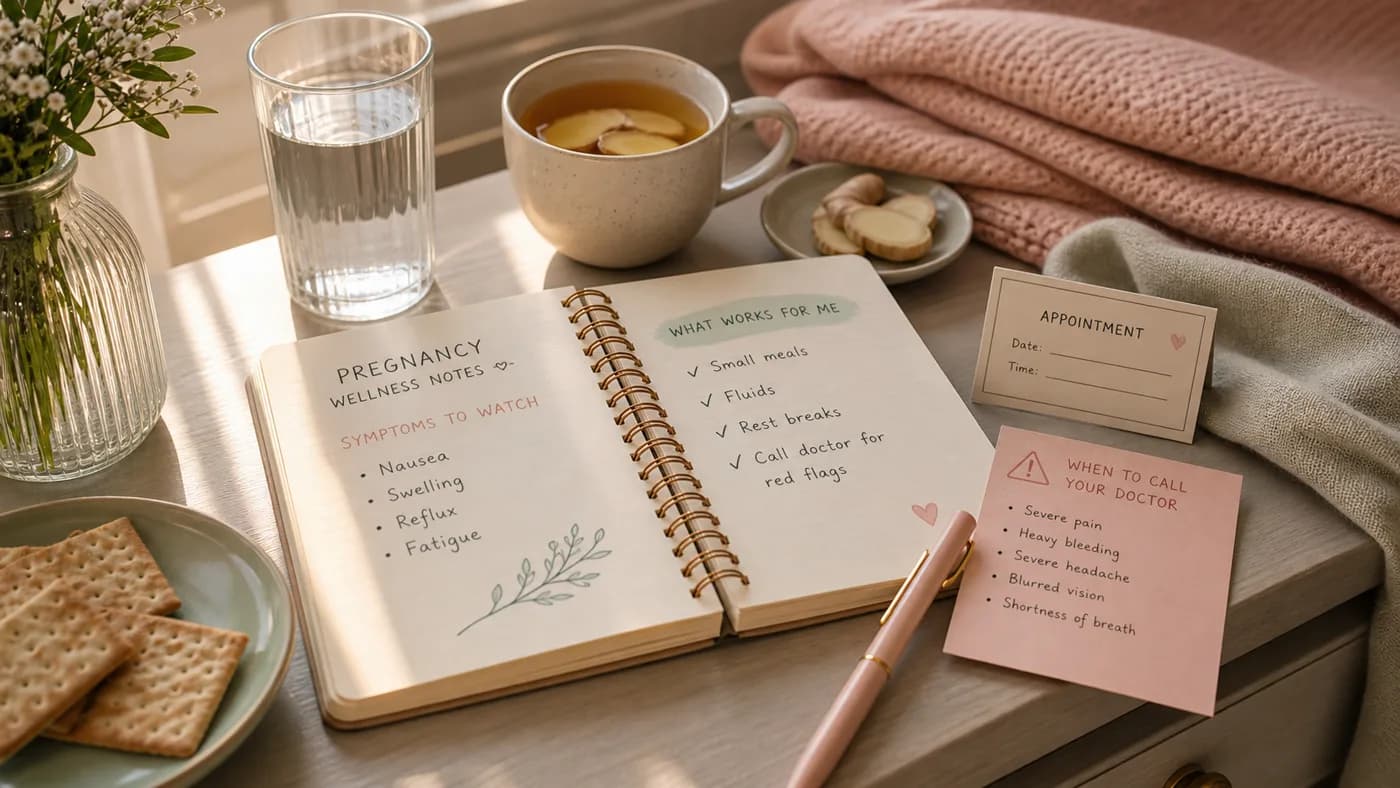 PREGNANCY
WELLNESS NOTES
SYMPTOMS TO WATCH
• Nausea
• Swelling
• Reflux
• Fatigue
WHAT WORKS FOR ME
✓ Small meals
✓ Fluids
✓ Rest breaks
✓ Call doctor for
red flags
APPOINTMENT
Date:
Time:
WHEN TO CALL
YOUR DOCTOR
• Severe pain
• Heavy bleeding
• Severe headache
• Blurred vision
• Shortness of breath